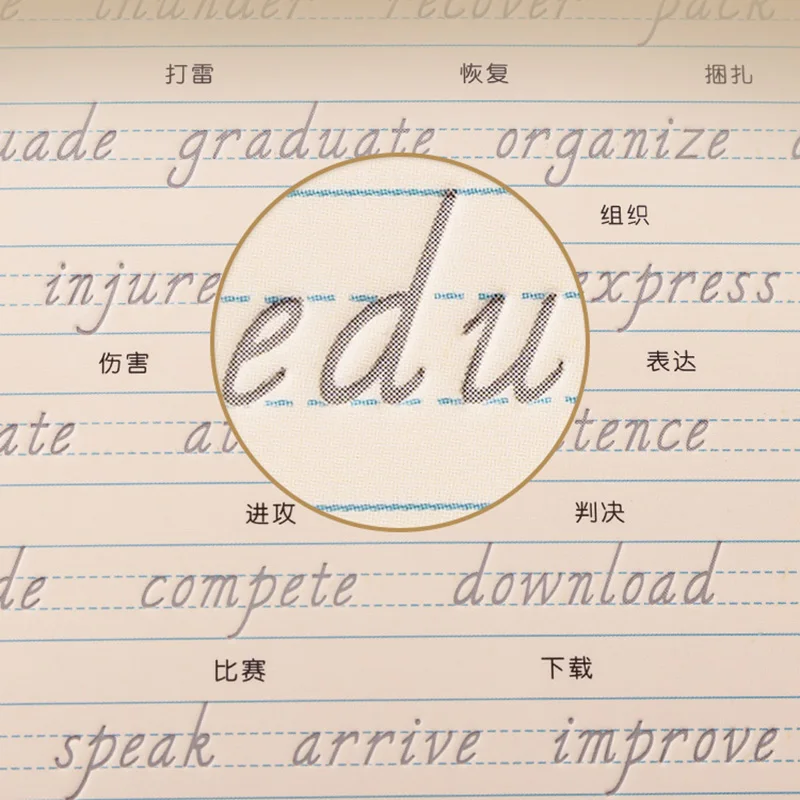 thunder recover pack
打雷 恢复 捆扎
uade graduate organize
组织
injure express
伤害 表达
ate at tence
进攻 判决
edu
de compete download
比赛 下载
speak arrive improve